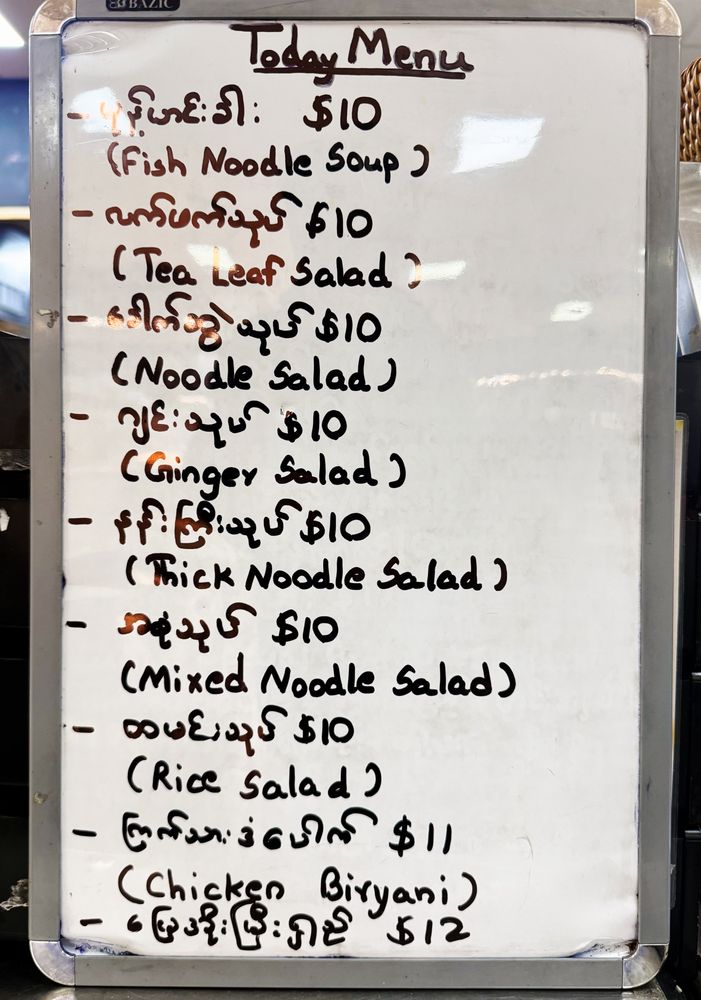 BAZIC
Today Menu
- မုန့်ဟင်းခါး $10
(Fish Noodle Soup)
- လက်ဖက်သုပ် $10
(Tea Leaf Salad)
- ခေါက်ဆွဲသုပ် $10
(Noodle Salad)
- ဂျင်းသုပ် $10
(Ginger Salad)
- နန်းကြီးသုပ် $10
(Thick Noodle Salad)
- အစုံသုပ် $10
(Mixed Noodle Salad)
- ထမင်းသုပ် $10
(Rice Salad)
- ကြက်သားဒံပေါက် $11
(Chicken Biryani)
- $12